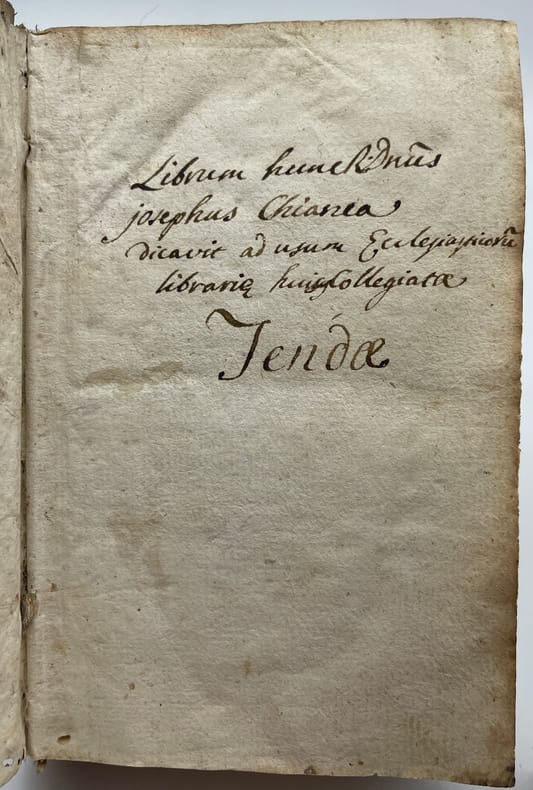 Librum hunc R. Dnūs
josephus Chianea
dicavit ad usum Ecclesiasticorū
librarię huius Collegiatæ
Tendæ